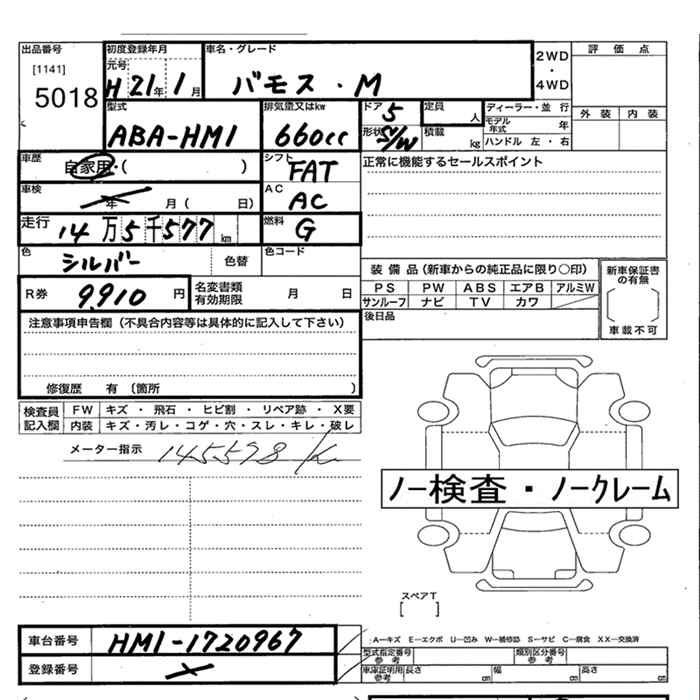 出品番号
[1141]
5018
初度登録年月
元号
H 21年 1月
車名・グレード
バモス・M
2WD
・
4WD
評価点
外装 内装
型式
ABA-HM1
排気量又はkw
660cc
ドア
5
形状
S/W
定員
人
積載
kg
ディーラー・並行
モデル年式 年
ハンドル 左・右
車歴
自家用・( )
シフト
FAT
正常に機能するセールスポイント
車検
年 月( 日)
AC
AC
走行
14万5千577km
燃料
G
色
シルバー
色替
色コード
装備品(新車からの純正品に限り○印)
PS PW ABS エアB アルミW
サンルーフ ナビ TV カワ
新車保証書の有無
車載不可
R券
9,910円
名変書類有効期限 月 日
後日品
注意事項申告欄(不具合内容等は具体的に記入して下さい)
修復歴 有 (箇所 )
検査員記入欄
FW キズ・飛石・ヒビ割・リペア跡・X要
内装 キズ・汚レ・コゲ・穴・スレ・キレ・破レ
メーター指示
145598 K
ノー検査・ノークレーム
スペアT
[ ]
車台番号
HM1-1720967
A-キズ E-エクボ U-凹み W-補修跡 S-サビ C-腐食 XX-交換済
型式指定番号参考
類別区分番号参考
登録番号
車庫証明用参考 長さ cm 幅 cm 高さ cm